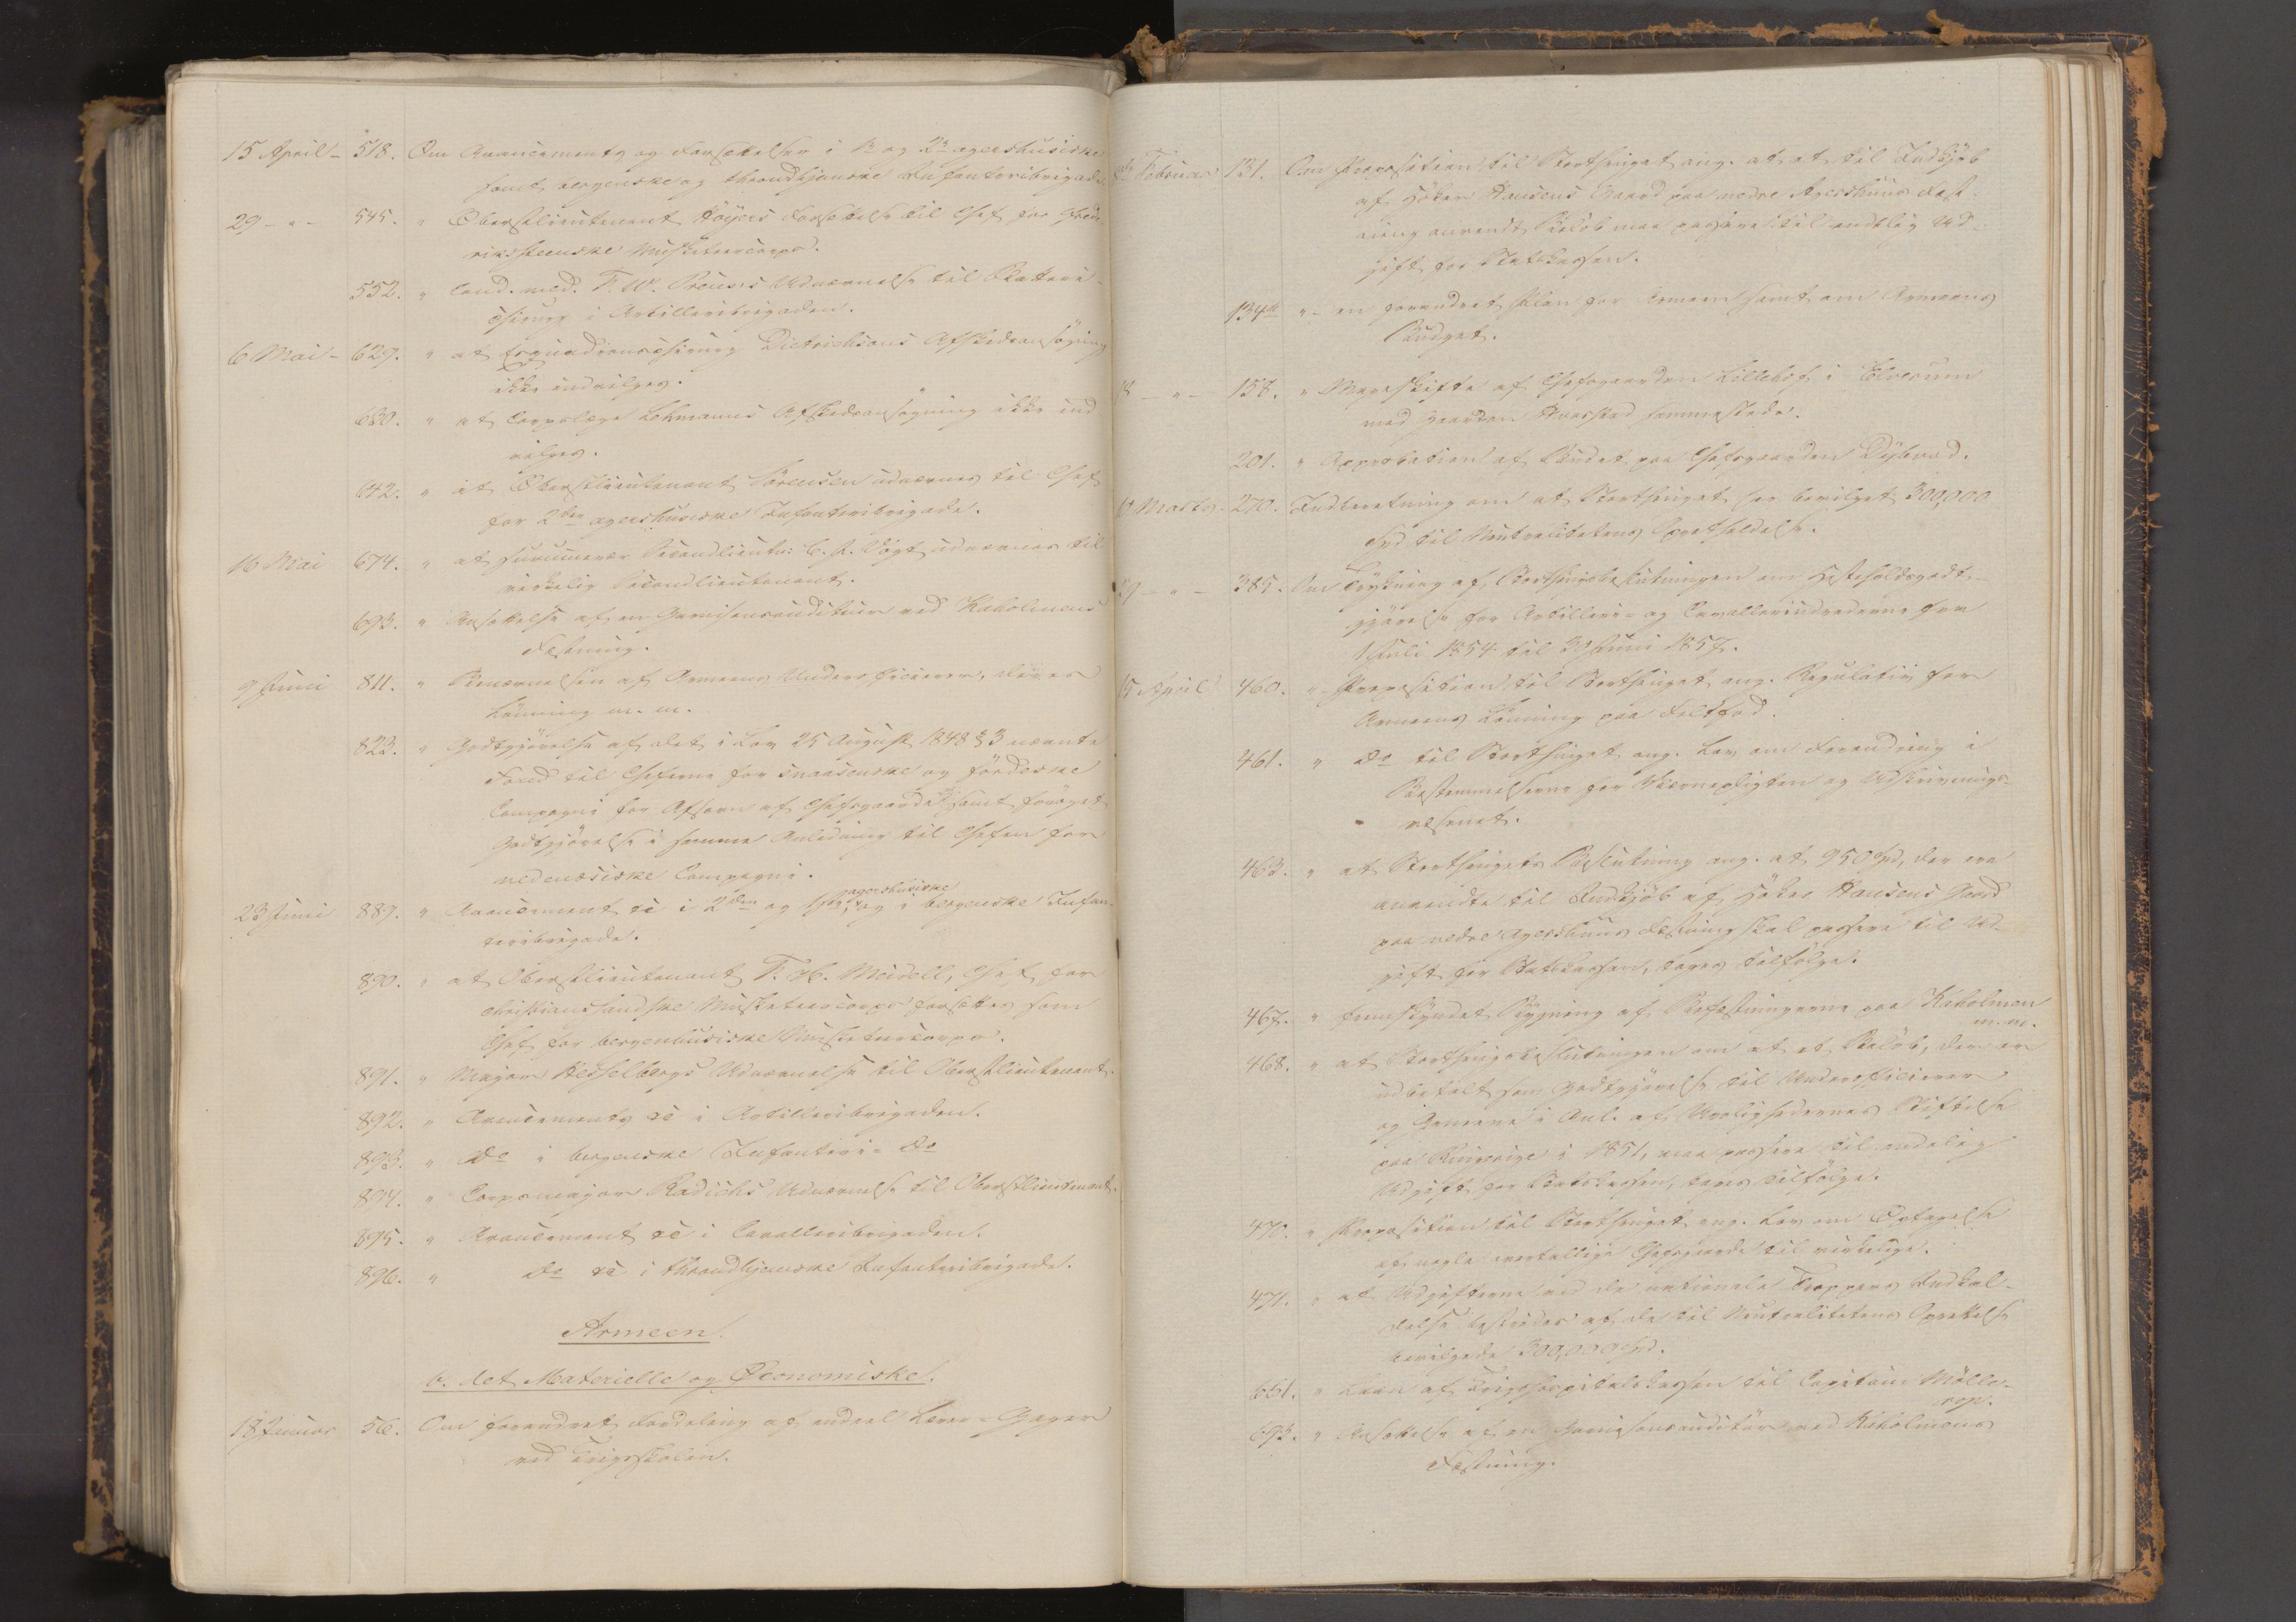 15 April - 518. Om Avancements og Forsættelser i 1ste og 2den agershusiske
samt bergenske og throndhjemske Infanteribrigade.
29 - " - 545. " Oberstlieutenant Höyers Forsættelse til Chef for Frede-
riksteenske Musketeercorps.
552. " Cand. med. F. W. Preuss's Udnævnelse til Batteri-
chirurg i Artilleribrigaden.
6 Mai - 629. " at Esquadronschirurg Dietrichsons Afskedsansøgning
ikke indvilges.
630. " at Corpslæge Lehmanns Afskedsansøgning ikke ind
vilges.
642. " at Oberstlieutenant Sörensen udnævnes til Chef
for 2den agershusiske Infanteribrigade.
16 Mai 674. " at surnumerær Secondlieutn: Vogt udnævnes til
virkelig Secondlieutenant.
693. " Ansættelse af en Garnisonsauditeur ved Kaholmens
Fæstning.
9 Juni 811. " Benævnelsen af Armeens Underofficierer, deres
Lönning m. m.
823. " Godtgjörelse af det i Lov 25 August 1848 § 3 nævnte
Fond til Cheferne for snaasenske og fördeske
Compagni for Afsavn af Chefsgaarde samt forøget
Godtgjörelse i samme Anledning til Chefen for
nedenæsiske Compagni.
23 Juni 889. " Avancement &c i 2den og 1ste agershusiske, og i bergenske Infan-
teribrigade.
890. " at Oberstlieutenant Meidell, Chef for
christianssandske Musketeercorps forsættes som
Chef for bergenhusiske Musketeercorps.
891. " Majorer Hesselbergs Udnævnelse til Oberstlieutenant.
892. " Avancements &c i Artilleribrigaden.
893. " Do i bergenske Infanteri- Do
894. " Corpsmajor Radichs Udnævnelse til Oberstlieutenant.
895. " Avancement &c i Cavalleribrigaden.
896. " Do &c i throndhjemske Infanteribrigade.
Armeen.
b. det Materielle og Oeconomiske.
18 Januar 56. Om forandret Fordeling af endeel Lærer-Gager
ved Krigsskolen.
Februar 131. Om Proposition til Storthinget ang. at et til Indkjöb
af Höker Hansens Gaard paa nedre Agershuus Fæst-
ning anvendt Belöb maa passere til endelig Ud-
gift for Statskassen.
134 " - en forandret Plan for Armeen samt om Armeens
Budget.
18 - " - 158. " Mageskifte af Chefsgaarden Lillehof i Elverum
med Gaarden sammesteds.
201. " Approbation af Budet paa Chefsgaarden Dybvad.
Marts. 270. Indberetning om at Storthinget har bevilget 300,000
Spd til Neutralitetens Opretholdelse.
29 - " - 385. Om Storthingsbeslutningen om Hesteholdsgodt-
gjörelse for Artilleri- og Cavalleriindrederne fra
1 Juli 1854 til 30 Juni 1857.
15 April 460. " Proposition til Storthinget ang. Regulativ for
Armeens Lönning paa Feltfod.
461. " Do til Storthinget ang. Lov om Forandring i
Bestemmelserne for Værnepligten og Udskrivnings-
væsenet.
463. " at Storthingets Beslutning ang. at 950 Spd, der ere
anvendte til Indkjöb af Höker Hansens Gaard
paa nedre Agershuus Fæstning skal passere til Ud-
gift for Statskassen, tages tilfölge.
467. " fremskyndet Bygning af Befæstningerne paa Kaholmen
m.m.
468. " at Storthingsbeslutningen om at et Belöb, der er
udbetalt som Godtgjörelse til Underofficierer
og Gemene i Anl. af Urolighedernes Stiftelse
paa Ringerige i 1851, maa passere til endelig
Udgift for Statskassen, tages tilfölge.
470. " Proposition til Storthinget ang. Lov om Optagelse
af nogle overtallige Chefsgaarde til virkelige.
471. " at Udgifterne ved de nationale Troppers Indkal-
delse bestrides af de til Neutralitetens
bevilgede 300,000 Spd.
651. " Laan af Krigshospitalskassen til Capitain Möller-
op.
693. " Ansættelse af en Garnisonsauditör ved Kaholmens
Fæstning.